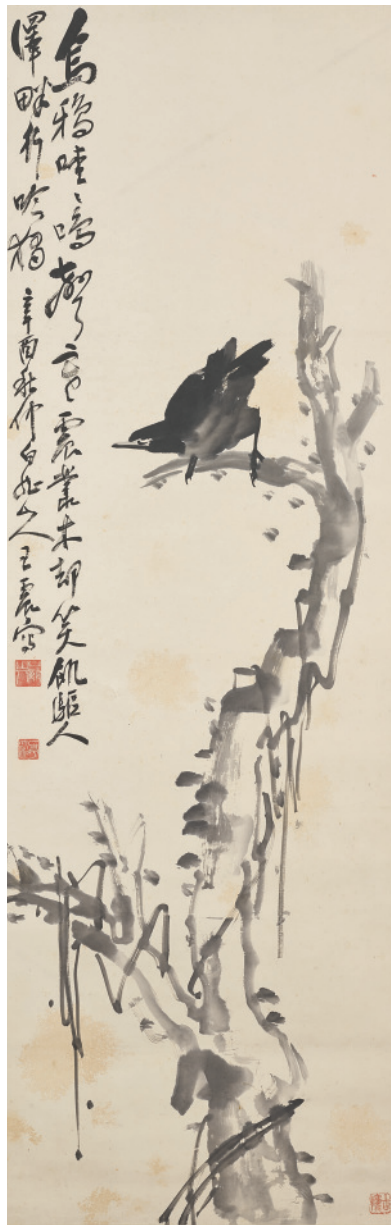 烏鴉哇哇鳴聲音震叢木却笑飢驅人
澤畔行吟獨
辛酉秋仲白龍山人王震寫